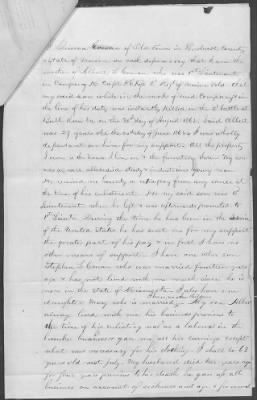 I Lumana Cowan of Old town in Penobscot County
& State of Maine on oath depose & say that I am the
mother of Albert L. Cowan who was 1st Lieutenant
in Company K Capt 2d Regt of Maine Vols. that
my said son while in the with said Company in
the line of his duty was instantly killed in the 2d battle of
Bull Run on the 30th day of August 1862. Said Albert
was 27 years old the day of June 1862. I was wholly
dependant on him for my support. All the property
I own is the house I live in & the furniture there. My son
was a very steady & industrious young man.
He remained in County & Company from my house at
the time of his enlistment. He my said son was 2d
Lieutenant when he left & was afterwards promoted to
1st Lieut. During the time he has been in the service
of the United States he has sent me for my support
the greater part of his pay & in fact I have no
other means of support. I have one other son
Stephen D. Cowan who was married fourteen years
ago & has not lived with me much since he is
now in the State of I also have one
daughter Mary who is married. My son Albert
always lived with me his business previous to
the time of his enlisting was as a laborer in the
lumber business gave me all his earnings except
what was necessary for his clothing. I shall be 63
years old next July. My husband died ten years ago
for four years previous to his death he gave up all
business on account of sickness and age &